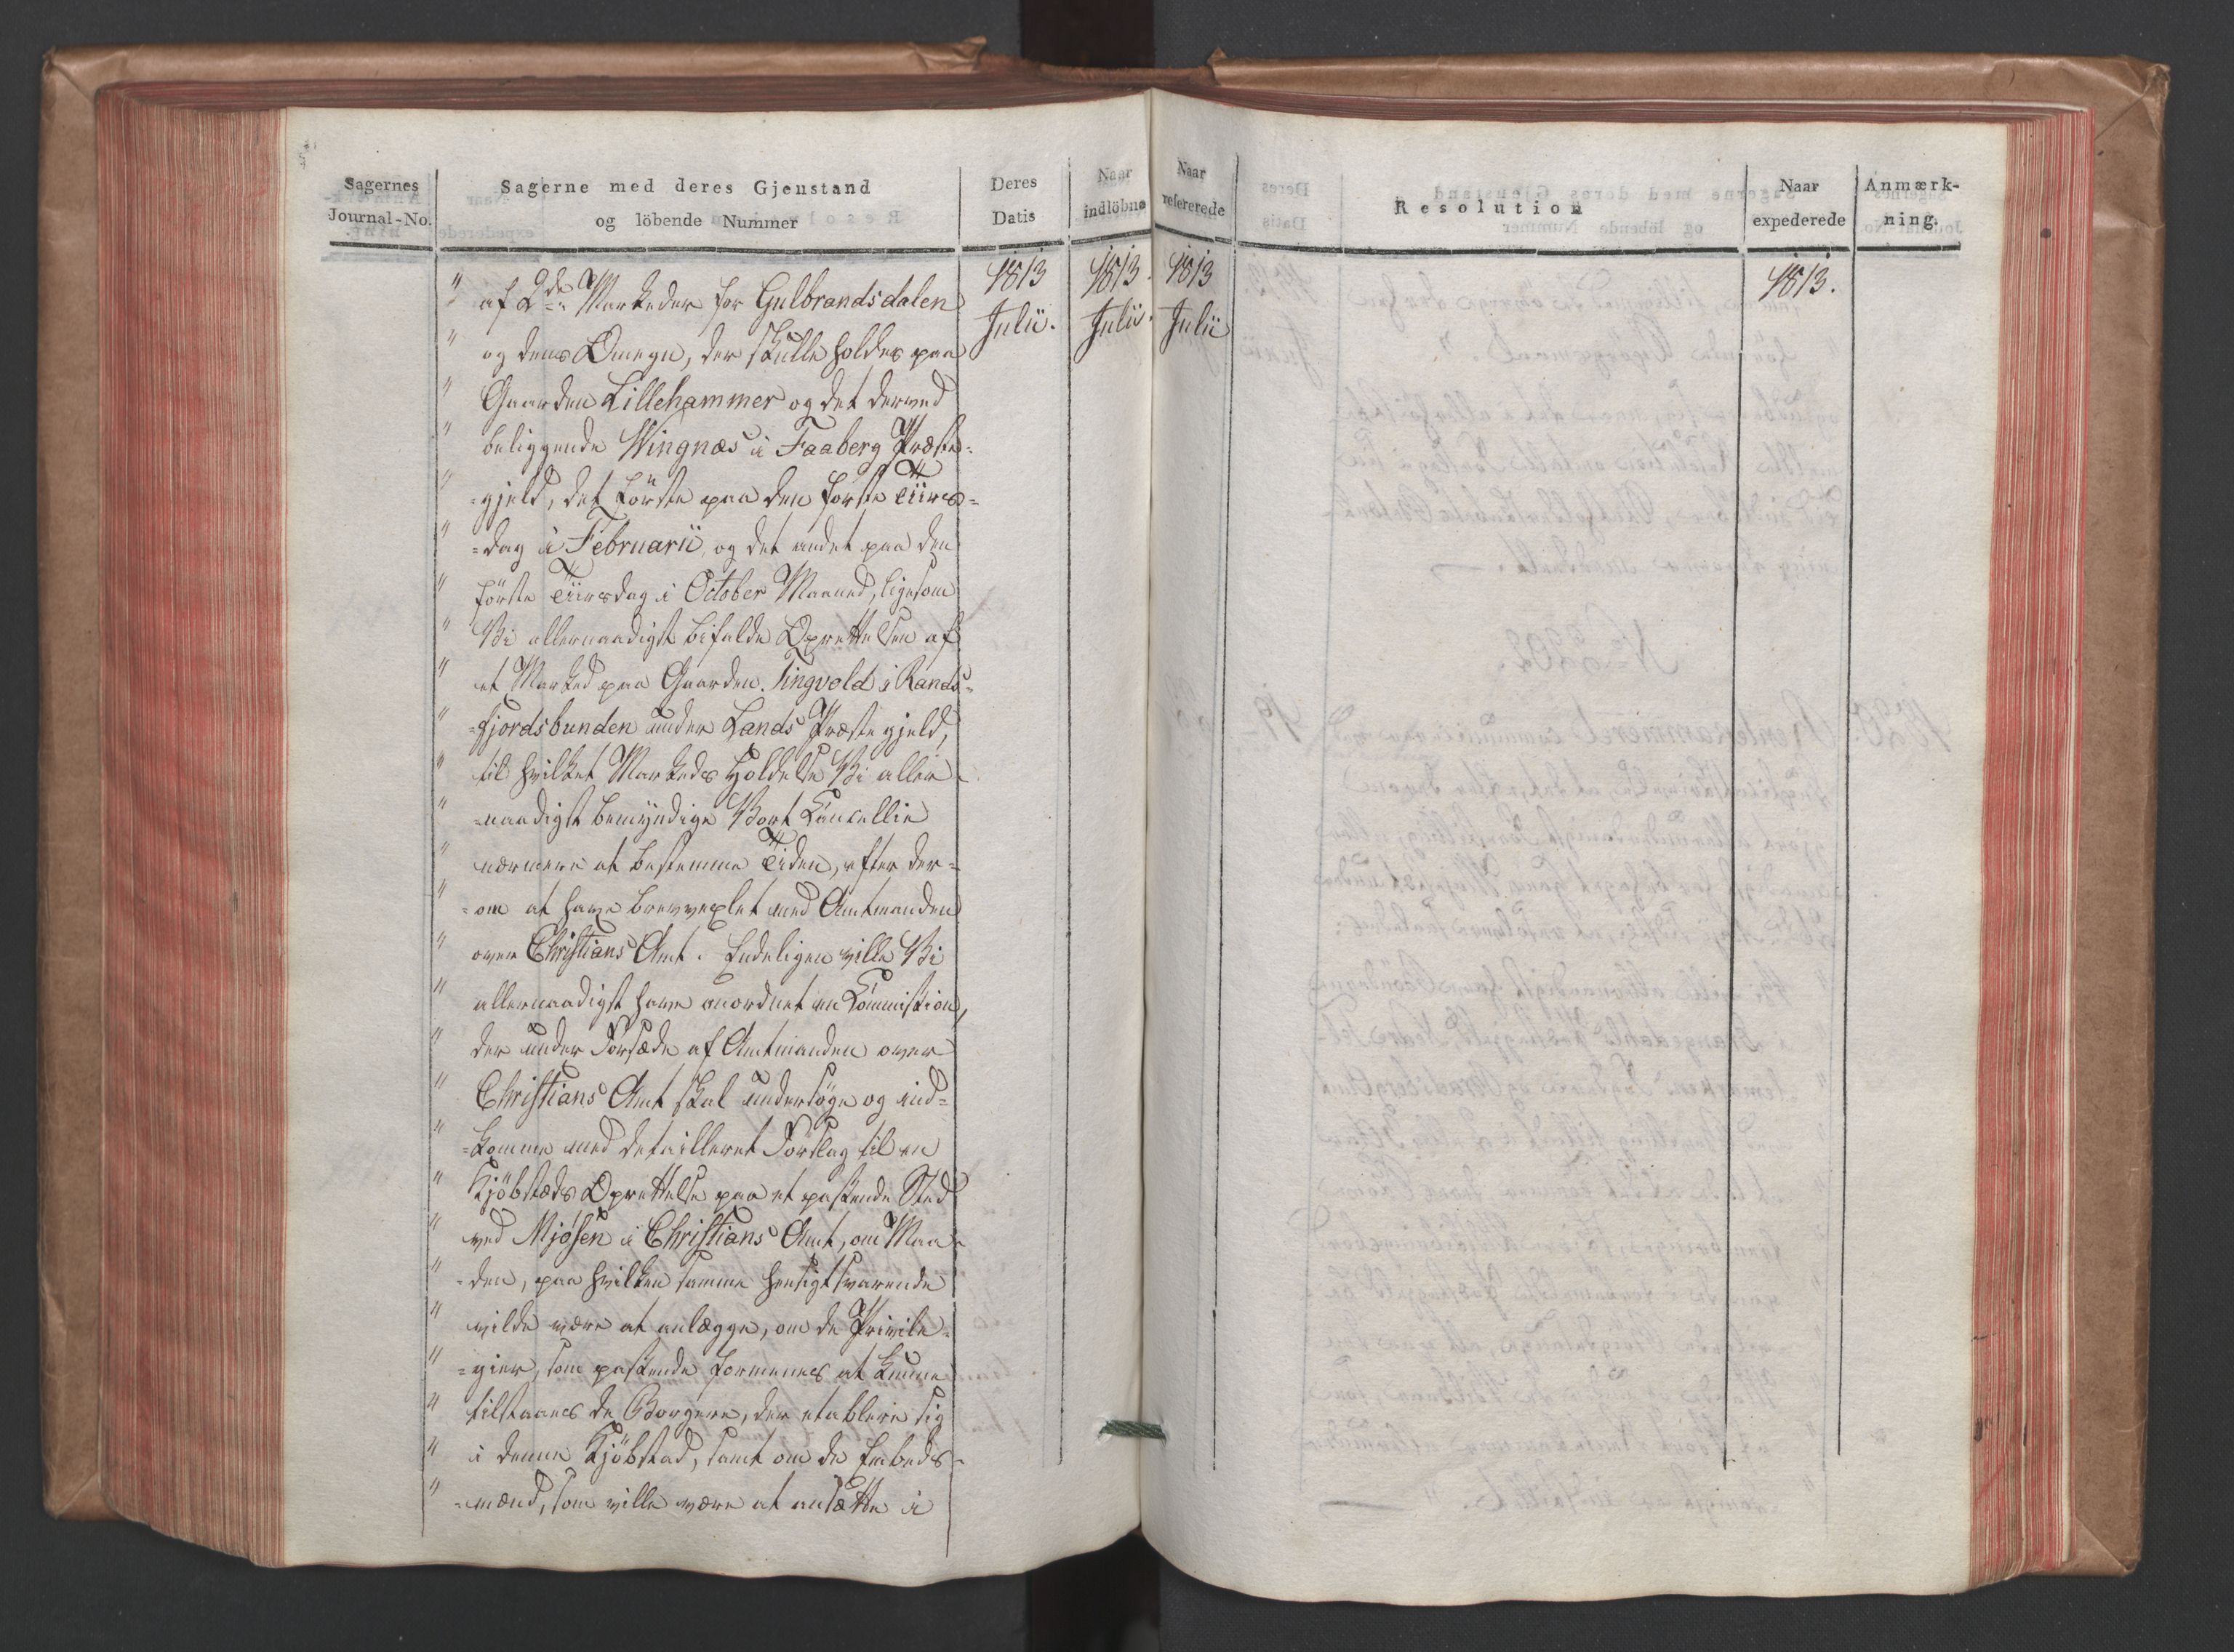 Sagernes
Journal-No.
Sagerne med deres Gjenstand
og löbende Nummer
Deres
Datis
Naar
indlöbne
Naar
refererede
Resolution
Naar
expederede
Anmærk-
ning.
1813
Julii.
1813.
Julii.
1813
Julii
1813.
" af 2de Markeder for Gulbrandsdalen
" og dens Omegn, der skulle holdes paa
" Gaarden Lillehammer og det derved
" beliggende Wingnæs i Faaberg Præste-
" =gjeld, det förste paa den förste Tiirs=
" =dag i Februarii, og det andet paa den
" förste Tiirsdag i October Maaned, ligesom
" Vi allernaadigst bifalde Oprettelsen af
" et Marked paa Gaarden Tingvold i Rands=
" =fjordsbunden under Lands Præstegjeld,
" til hvilket Markeds Holdelse Vi aller-
" =naadigst bemyndige Vort Cancellie
" nærmere at bestemme Tiden, efter der=
" =om at have brevvexlet med Amtmanden
" over Christians Amt. Endeligen ville Vi
" allernaadigst have anordnet en Commission,
" der under Forsæde af Amtmanden over
" Christians Amt skal undersöge og ind=
" =komme med detailleret Forslag til en
" Kjöbstæds Oprettelse paa et passende Sted
" ved Mjösen i Christians Amt, om Maa-
" =den, paa hvilken samme hensigtsvarende
" vilde være at anlægge, om de Privile-
" =gier, som passende formenes at kunne
" tilstaaes de Borgere, der etablere sig
" i denne Kjöbstad, samt om de Embeds-
" =mænd, som ville være at ansætte i